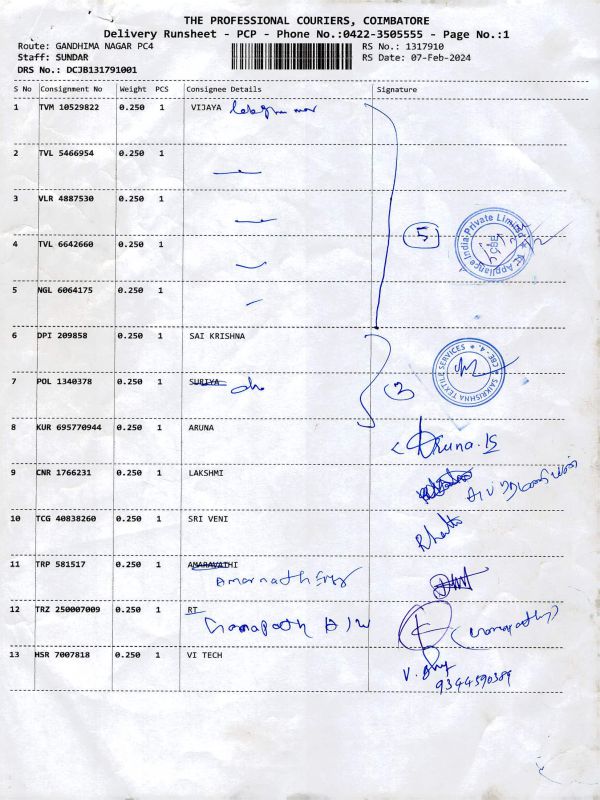 THE PROFESSIONAL COURIERS, COIMBATORE
Delivery Runsheet - PCP - Phone No.:0422-3505555 - Page No.:1
Route: GANDHIMA NAGAR PC4 RS No.: 1317910
Staff: SUNDAR RS Date: 07-Feb-2024
DRS No.: DCJB131791001
S No Consignment No Weight PCS Consignee Details Signature
1 TVM 10529822 0.250 1 VIJAYA
2 TVL 5466954 0.250 1
3 VLR 4887530 0.250 1
4 TVL 6642660 0.250 1
5
Appliance India Private Limited
CBE
5 NGL 6064175 0.250 1
6 DPI 209858 0.250 1 SAI KRISHNA
SAIKRISHNA TEXTILE SERVICES * CBE-4. *
7 POL 1340378 0.250 1 SURIYA
8 KUR 695770944 0.250 1 ARUNA Aruna.
9 CNR 1766231 0.250 1 LAKSHMI
10 TCG 40838260 0.250 1 SRI VENI
11 TRP 581517 0.250 1 AMARAVATHI
Amarnath
12 TRZ 250007009 0.250 1 RT
13 HSR 7007818 0.250 1 VI TECH V.
9344590389